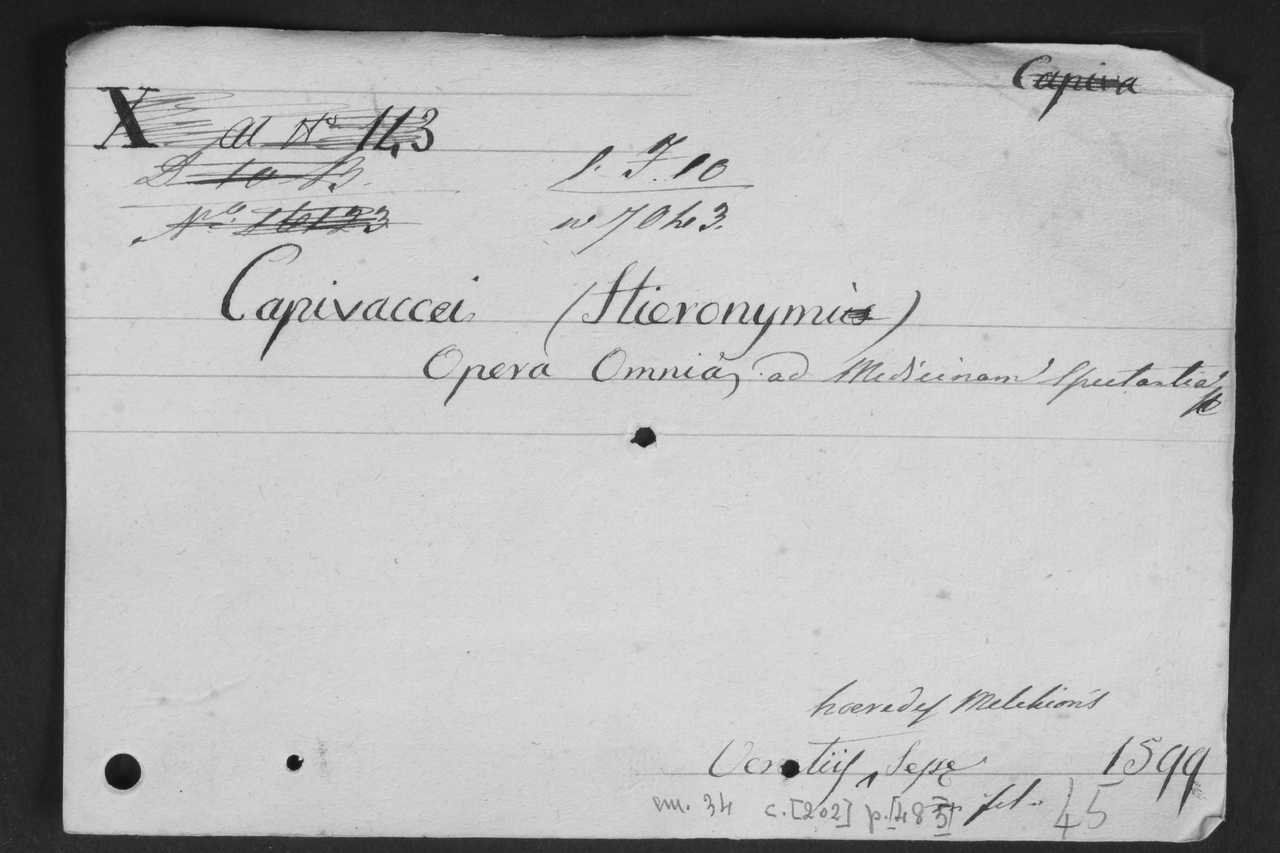 Capiva
X al Nº 143
D 10 13.
Nº. 16123
l. F. 10
nº 7043.
Capivaccei (Hieronymi)
Opera Omnia, ad Medicinam Spectantia
hæredes Melchioris
Venetiis, Sepæ 1599
em. 34 c.[202] p.[48 fol. 45